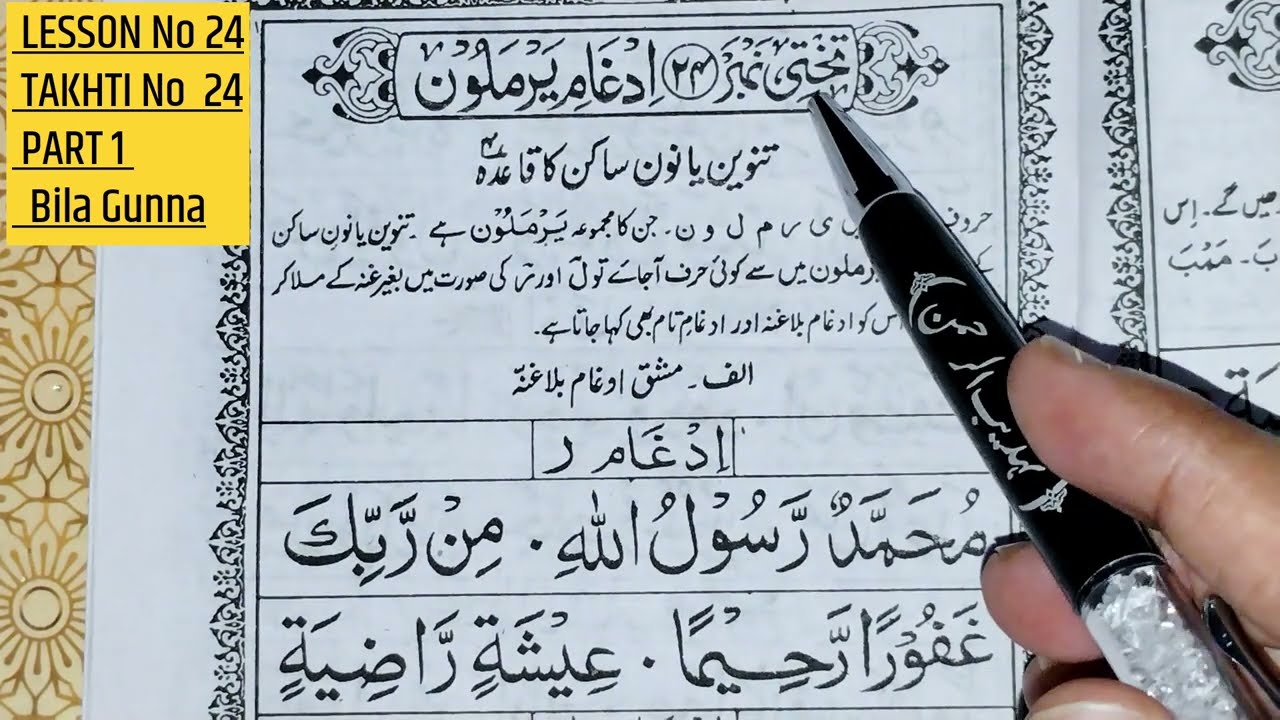 LESSON No 24
TAKHTI No 24
PART 1
Bila Gunna
تختی نمبر ۲۴ اِدْغَامِ یَرْمَلُوْن
تنوین یا نون ساکن کا قاعدہ
حروف ی ر م ل و ن۔ جن کا مجموعہ یَرْمَلُوْن ہے۔ تنوین یا نون ساکن
میں سے کوئی حرف آجائے تو ل اور ر کی صورت میں بغیر غنہ کے ملا کر
اس کو ادغام بلاغنہ اور ادغام تام بھی کہا جاتا ہے۔
الف۔ مشق ادغام بلاغنّہ
اِدْغَام ر
مُحَمَّدٌ رَّسُوْلُ اللهِ · مِنْ رَّبِّكَ
غَفُوْرًا رَّحِيْمًا · عِيْشَةٍ رَّاضِيَةٍ
میں گے۔ اِس
بَ۔ مَمْبَ